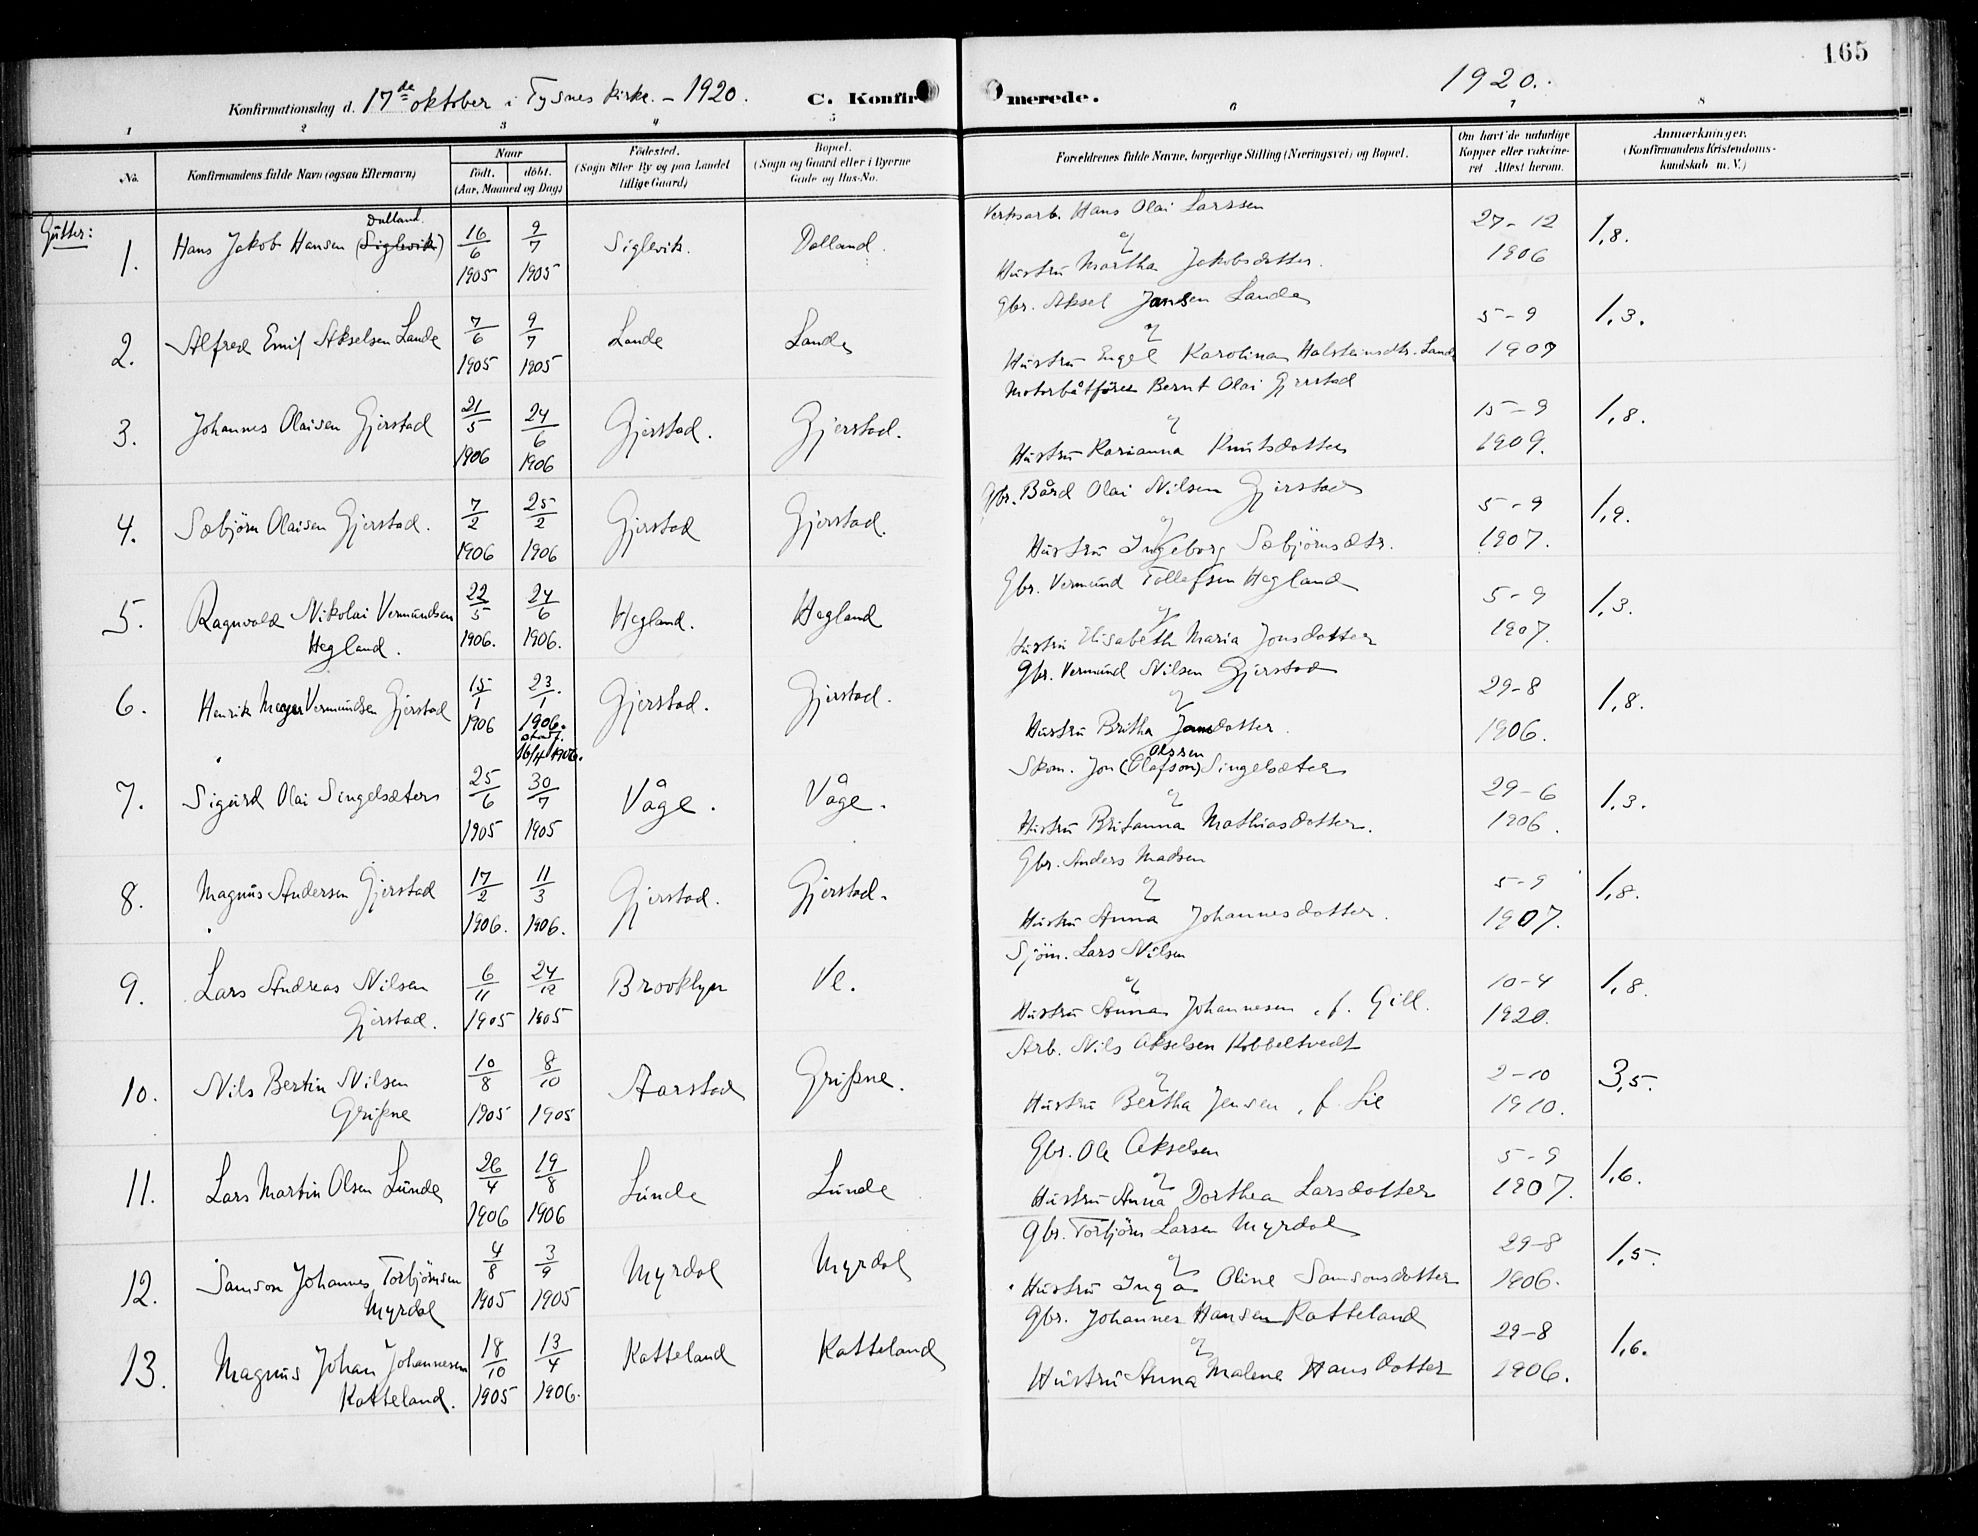 165
Konfirmationsdag d. 17de oktober i Tysnes kirke. – 1920. C. Konfirmerede. 1920.
1 2 3 4 5 6 7 8
No.
Konfirmandens fulde Navn (ogsaa Efternavn)
Naar
født. døbt.
(Aar, Maaned og Dag)
Fødested.
(Sogn eller By og paa Landet
tillige Gaard)
Bopæl.
(Sogn og Gaard eller i Byerne
Gade og Hus-No.
Forældrenes fulde Navne, borgerlige Stilling (Næringsvei) og Bopæl.
Om havt de naturlige
Kopper eller vaccine-
ret Attest herom.
Anmærkninger.
(Konfirmandens Kristendoms-
kundskab m. V.)
Gutter:
Dalland.
1. Hans Jakob Hansen (Siglevik) 16/6 1905 9/7 1905 Siglevik. Dalland.
Verksarb. Hans Olai Larssen
og
Hustru Martha Jakobsdotter.
27-12 1906 1,8.
2. Alfred Emil Akselsen Lande 7/6 1905 9/7 1905 Lande Lande
Gbr. Aksel Jansen Lande
og
Hustru Engel Karolina Halsteinsdtr. Lande
5-9 1907 1,3.
3. Johannes Olaisen Gjerstad 21/5 1906 24/6 1906 Gjerstad. Gjerstad.
Motorbåtfører Bernt Olai Gjerstad
og
Hustru Karianna Knutsdotter
15-9 1909. 1,8.
4. Sæbjørn Olaisen Gjerstad. 7/2 1906 25/2 1906 Gjerstad Gjerstad.
Gbr. Bård Olai Nilsen Gjerstad
og
Hustru Ingeborg Sæbjørnsdtr.
5-9 1907. 1,9.
5. Ragnvald Nikolai Vermundsen
Hegland. 22/5 1906. 24/6 1906. Hegland. Hegland
Gbr. Vermund Tollefsen Hegland
og
Hustru Elisabeth Maria Jonsdotter
5-9 1907. 1,3.
6. Henrik Meyer Vermundsen Gjerstad 15/1 1906 23/1 1906. stadf. 16/4 1906. Gjerstad. Gjerstad.
Gbr. Vermund Nilsen Gjerstad
og
Hustru Britha Jansdotter.
29-8 1906. 1,8.
7. Sigurd Olai Singelsæter 25/6 1905 30/7 1905 Våge. Våge.
Olssen
Skom. Jon (Olafson) Singelsæter
og
Hustru Britanna Mathiasdotter.
29-6 1906. 1,3.
8. Magnus Andersen Gjerstad 17/2 1906. 11/3 1906. Gjerstad. Gjerstad.
Gbr. Anders Madsen
og
Hustru Anna Johannesdotter.
5-9 1907. 1,8.
9. Lars Andreas Nilsen
Gjerstad. 6/11 1905 24/12 1905 Brooklyn Ve.
Sjøm. Lars Nilsen
og
Hustru Anna Johannesen, f. Gill.
10-4 1920. 1,8.
10. Nils Bertin Nilsen
Grißne 10/8 1905 8/10 1905 Aarstad Grißne.
Arb. Nils Akselsen Kobbeltvedt
og
Hustru Bertha Jensen, f. Lie
2-10 1910. 3,5.
11. Lars Martin Olsen Lunde 26/4 1906 19/8 1906 Lunde Lunde
Gbr. Ole Akselsen
og
Hustru Anna Dorthea Larsdotter
5-9 1907. 1,6.
12. Samson Johannes Torbjørnsen
Myrdal 4/8 1905 3/9 1905 Myrdal Myrdal
Gbr. Torbjørn Larsen Myrdal
og
Hustru Inga Oline Samsonsdotter
29-8 1906. 1,5.
13. Magnus Johan Johannesen
Katteland. 18/10 1905 13/4 1906. Katteland Katteland
Gbr. Johannes Hansen Katteland
og
Hustru Anna Malene Hansdotter
29-8 1906. 1,6.